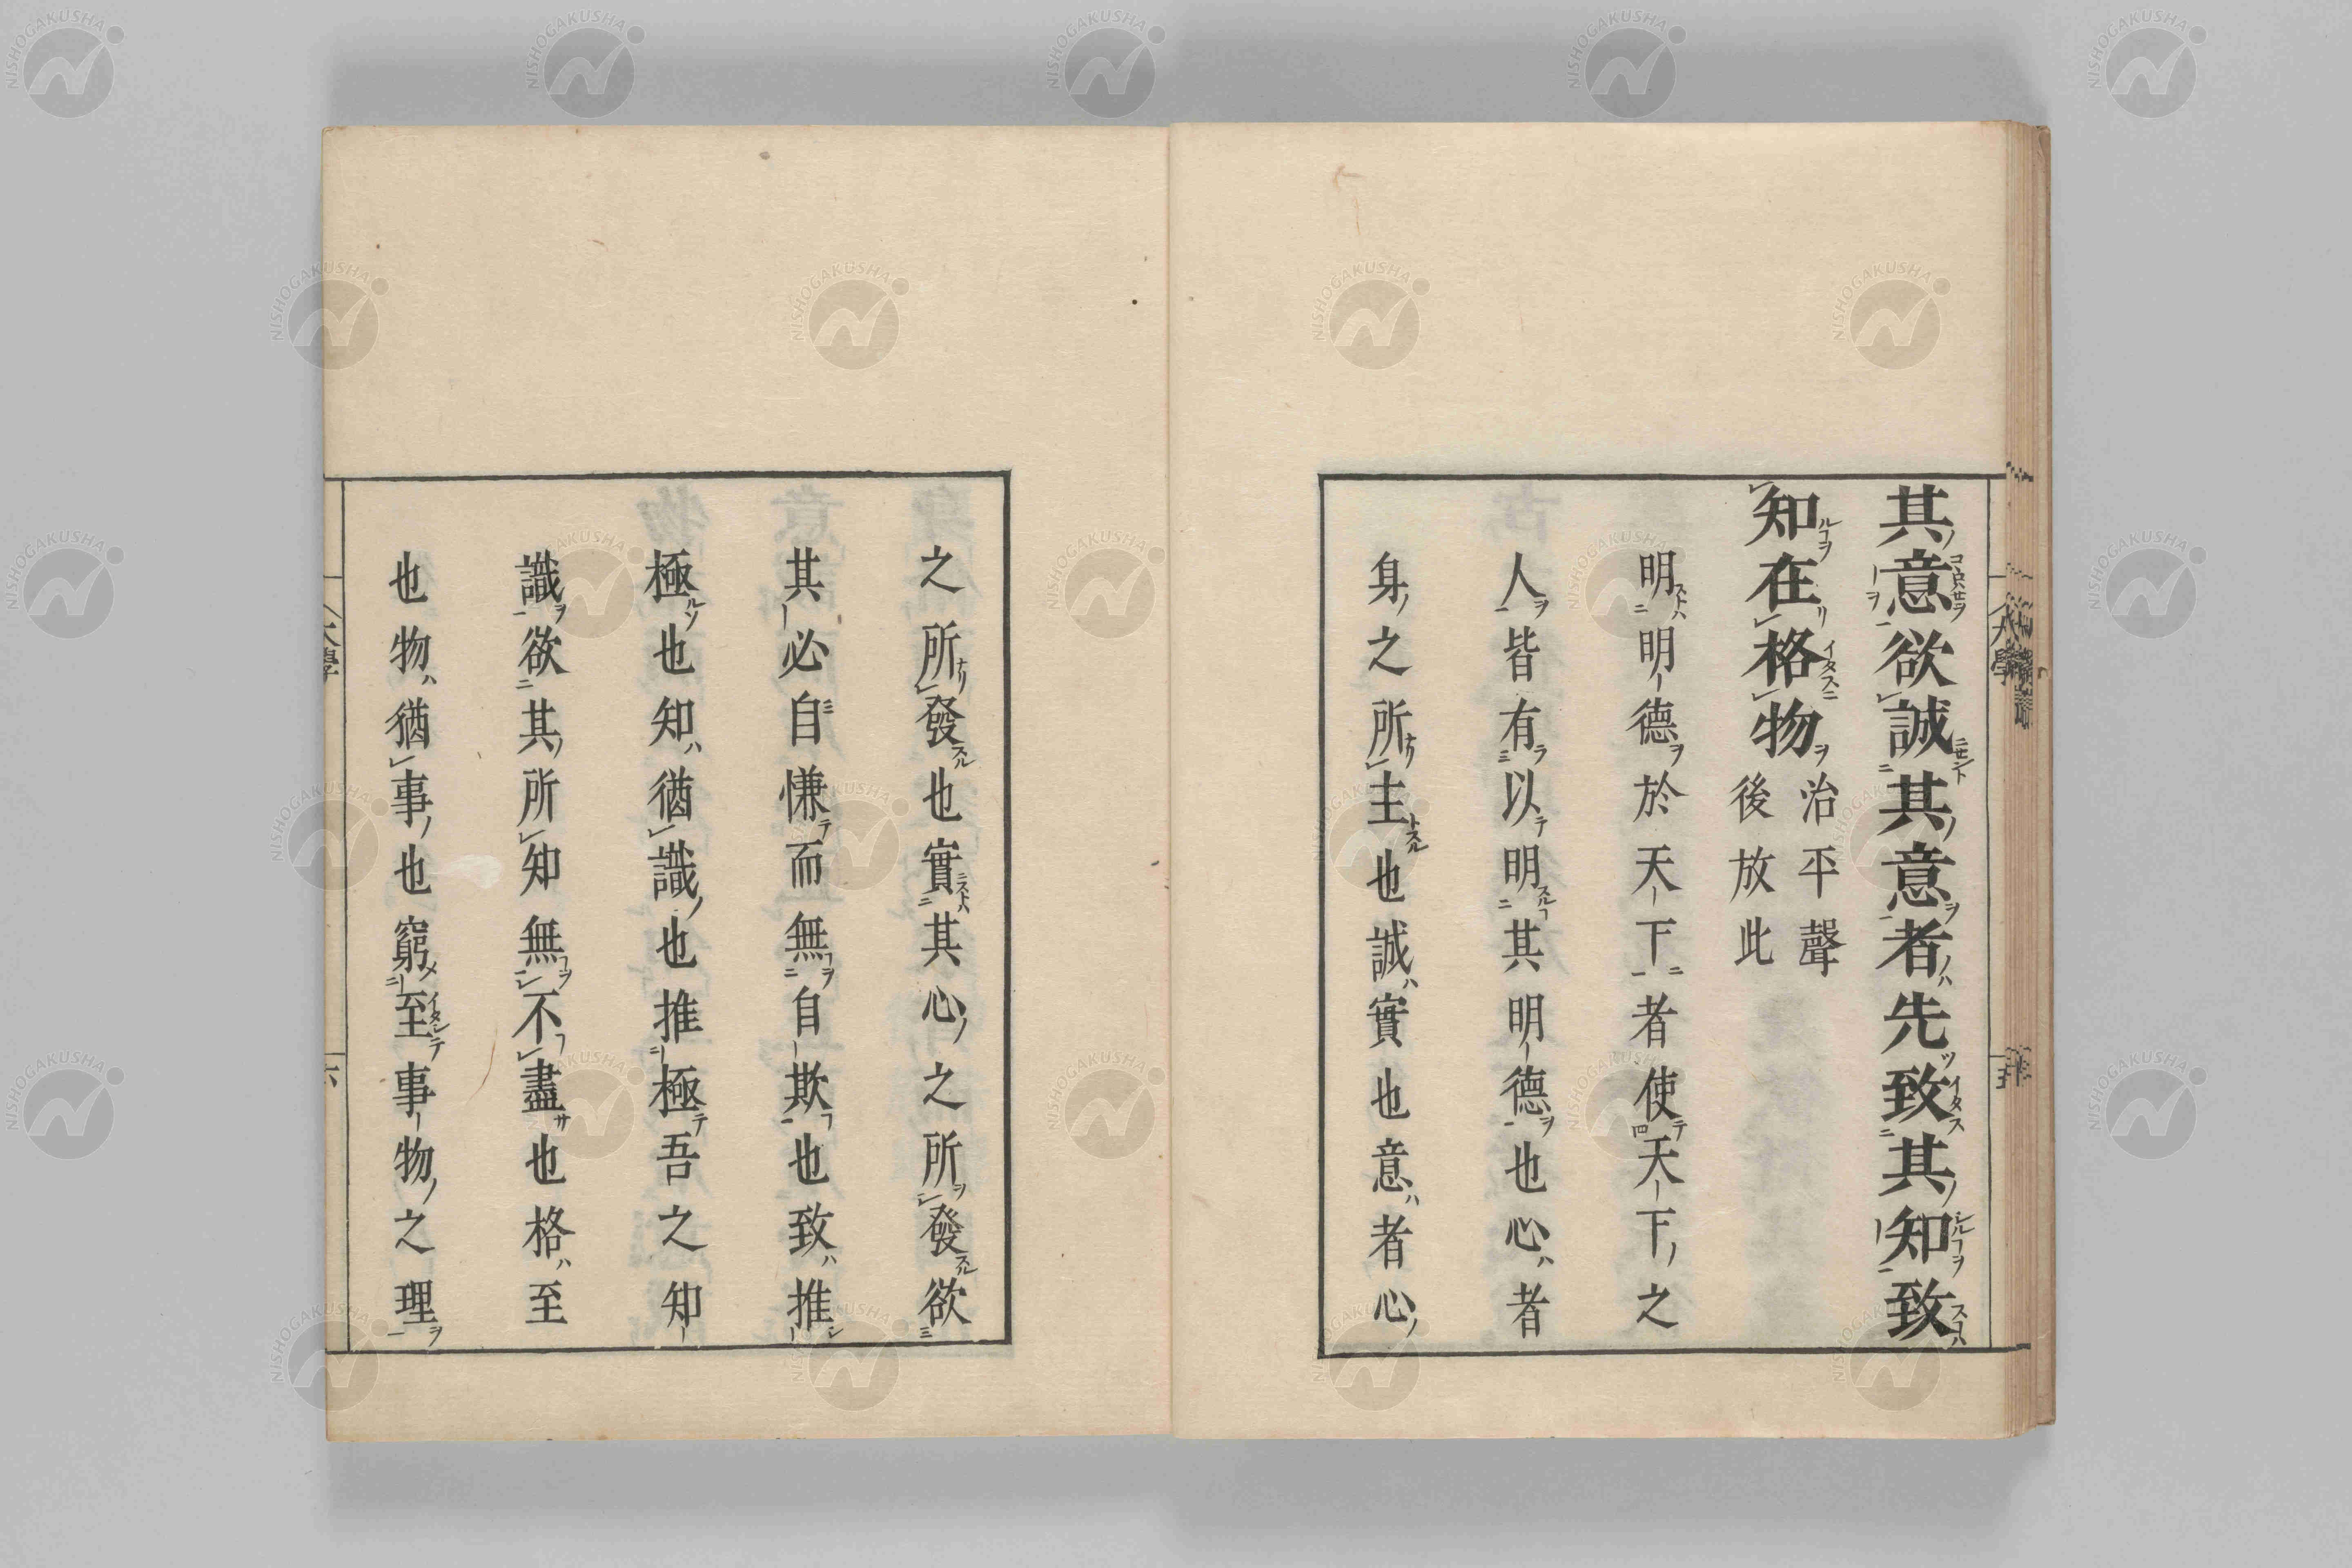 其意欲誠其意者先致其知致
知在格物治平聲
後放此
明明德於天下者使天下之
人皆有以明其明德也心者
身之所主也誠實也意者心
之所發也實其心之所發欲
其必自慊而無自欺也致推
極也知猶識也推極吾之知
識欲其所知無不盡也格至
也物猶事也窮至事物之理
大學
五
大學
六
NISHOGAKUSHA